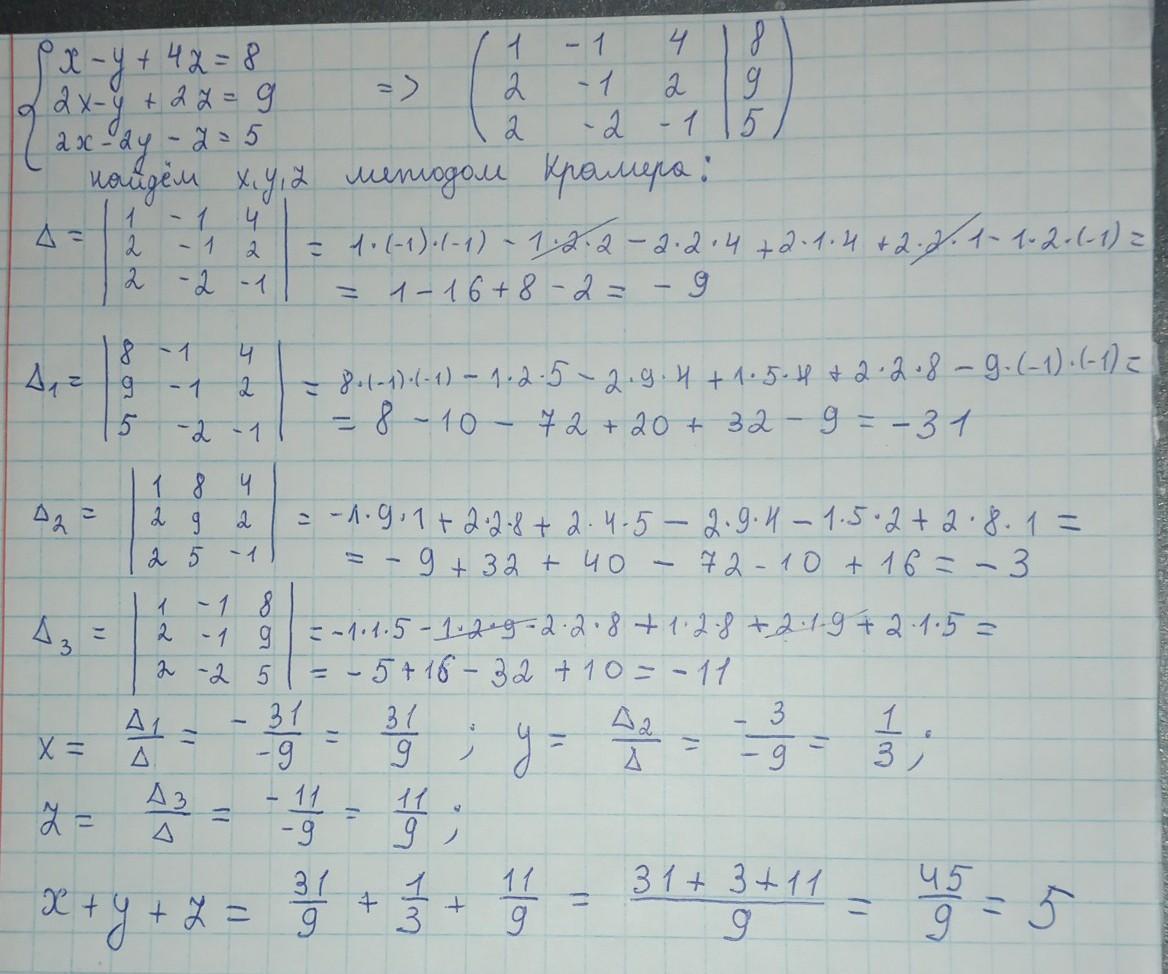 { x - y + 4z = 8 => ( 1 -1 4 | 8 )
2x - y + 2z = 9 ( 2 -1 2 | 9 )
2x - 2y - z = 5 ( 2 -2 -1 | 5 )
найдём x, y, z методом Крамера:
Δ = | 1 -1 4 |
| 2 -1 2 | = 1·(-1)·(-1) - 1·2·2 - 2·2·4 + 2·1·4 + 2·2·1 - 1·2·(-1) =
| 2 -2 -1 | = 1 - 16 + 8 - 2 = - 9
Δ1 = | 8 -1 4 |
| 9 -1 2 | = 8·(-1)·(-1) - 1·2·5 - 2·9·4 + 1·5·4 + 2·2·8 - 9·(-1)·(-1) =
| 5 -2 -1 | = 8 - 10 - 72 + 20 + 32 - 9 = -31
Δ2 = | 1 8 4 |
| 2 9 2 | = -1·9·1 + 2·2·8 + 2·4·5 - 2·9·4 - 1·5·2 + 2·8·1 =
| 2 5 -1 | = - 9 + 32 + 40 - 72 - 10 + 16 = - 3
Δ3 = | 1 -1 8 |
| 2 -1 9 | = -1·1·5 - 1·2·9 - 2·2·8 + 1·2·8 + 2·1·9 + 2·1·5 =
| 2 -2 5 | = - 5 + 16 - 32 + 10 = - 11
x = Δ1/Δ = - 31/-9 = 31/9 ; y = Δ2/Δ = - 3/-9 = 1/3 ;
z = Δ3/Δ = - 11/-9 = 11/9 ;
x + y + z = 31/9 + 1/3 + 11/9 = 31 + 3 + 11/9 = 45/9 = 5